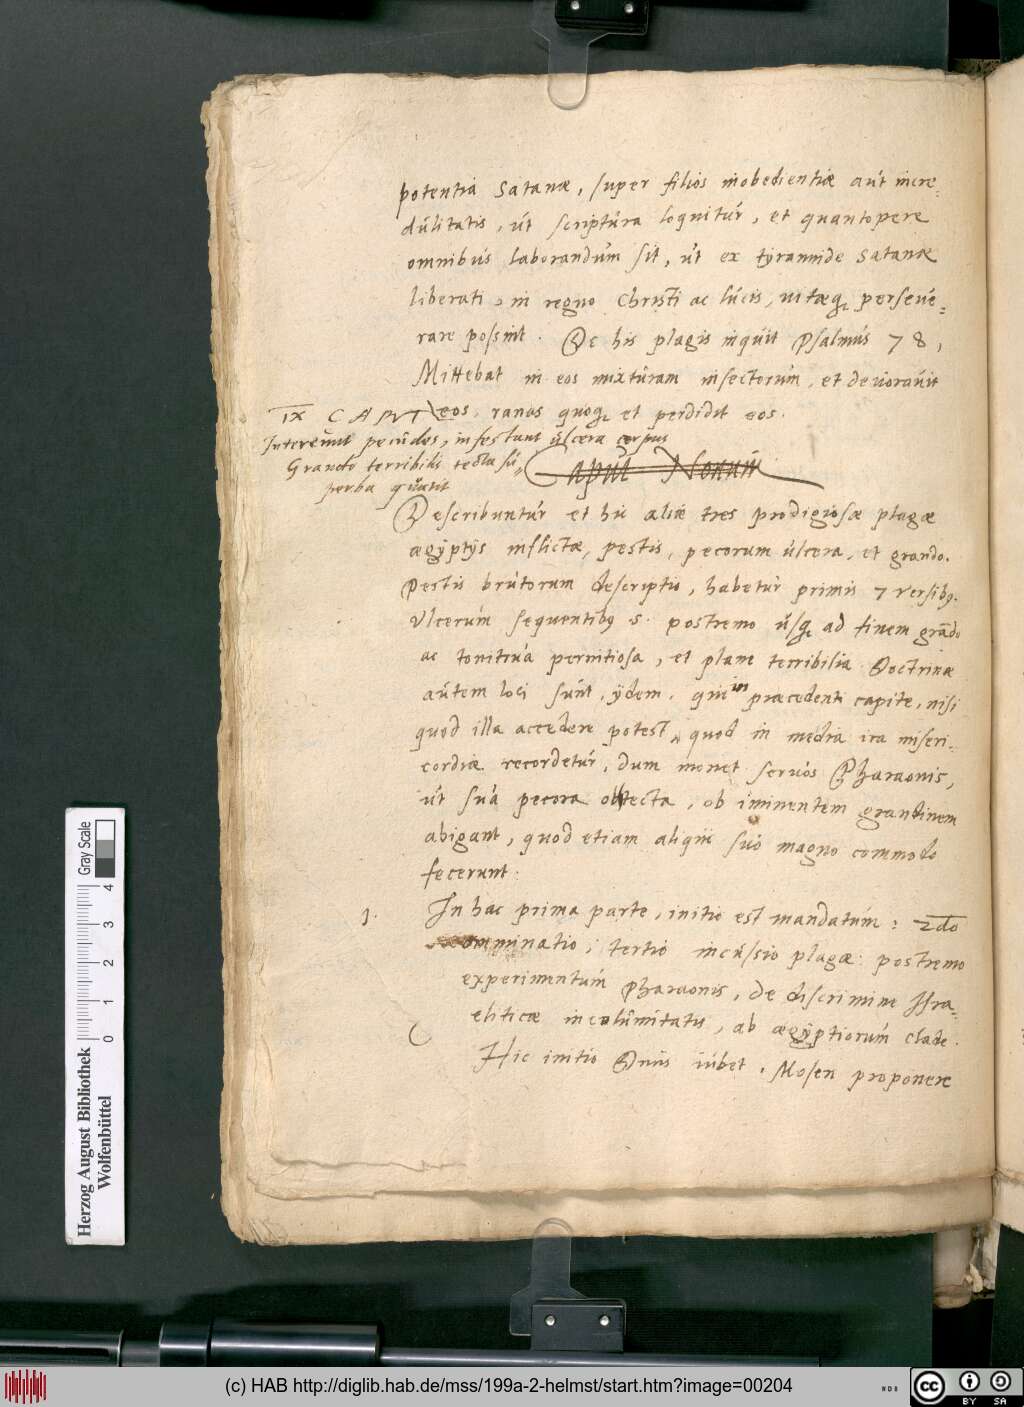 potentia Satanæ, super filios inobedientiæ aut incre-
dulitatis, ut scriptura loquitur, et quantopere
omnibus laborandum sit, ut ex tyrannide Satanæ
liberati, in regno Christi ac lucis, vitæq; perseve-
rare possint. De his plagis inquit Psalmus 78,
Mittebat in eos mixturam insectorum, et devoravit
eos, ranas quoq; et perdidit eos.
IX CAPUT
Intereunt pecudes, infestant ulcera corpus
Grando terribilis tecta su-
perba quatit
Caput Nonum
Describuntur et hic aliæ tres prodigiosæ plagæ
ægyptijs inflictæ, pestis, pecorum ulcera, et grando.
Pestis brutorum descriptio, habetur primis 7 versib9.
Ulcerum sequentib9 5. postremo usq; ad finem grādo
ac tonitrua pernitiosa, et plane terribilia. Doctrinæ
autem loci sunt, ijdem, qui in præcedenti capite, nisi
quod illa accedere potest, quod in media ira miseri-
cordiæ recordetur, dum monet servos Pharaonis,
ut sua pecora obtecta, ob iminentem grandinem
abigant, quod etiam aliqui suo magno commodo
fecerunt.
1. In hac prima parte, initio est mandatum: 2do
comminatio, tertio incursio plagæ: postremo
experimentum Pharaonis, de discrimine Isra-
eliticæ incolumitatis, ab ægyptiorum clade.
Hic initio Dnūs iubet, Mosen proponere
Herzog August Bibliothek
Wolfenbüttel
Gray Scale
0 1 2 3 4
(c) HAB http://diglib.hab.de/mss/199a-2-helmst/start.htm?image=00204
cc BY SA